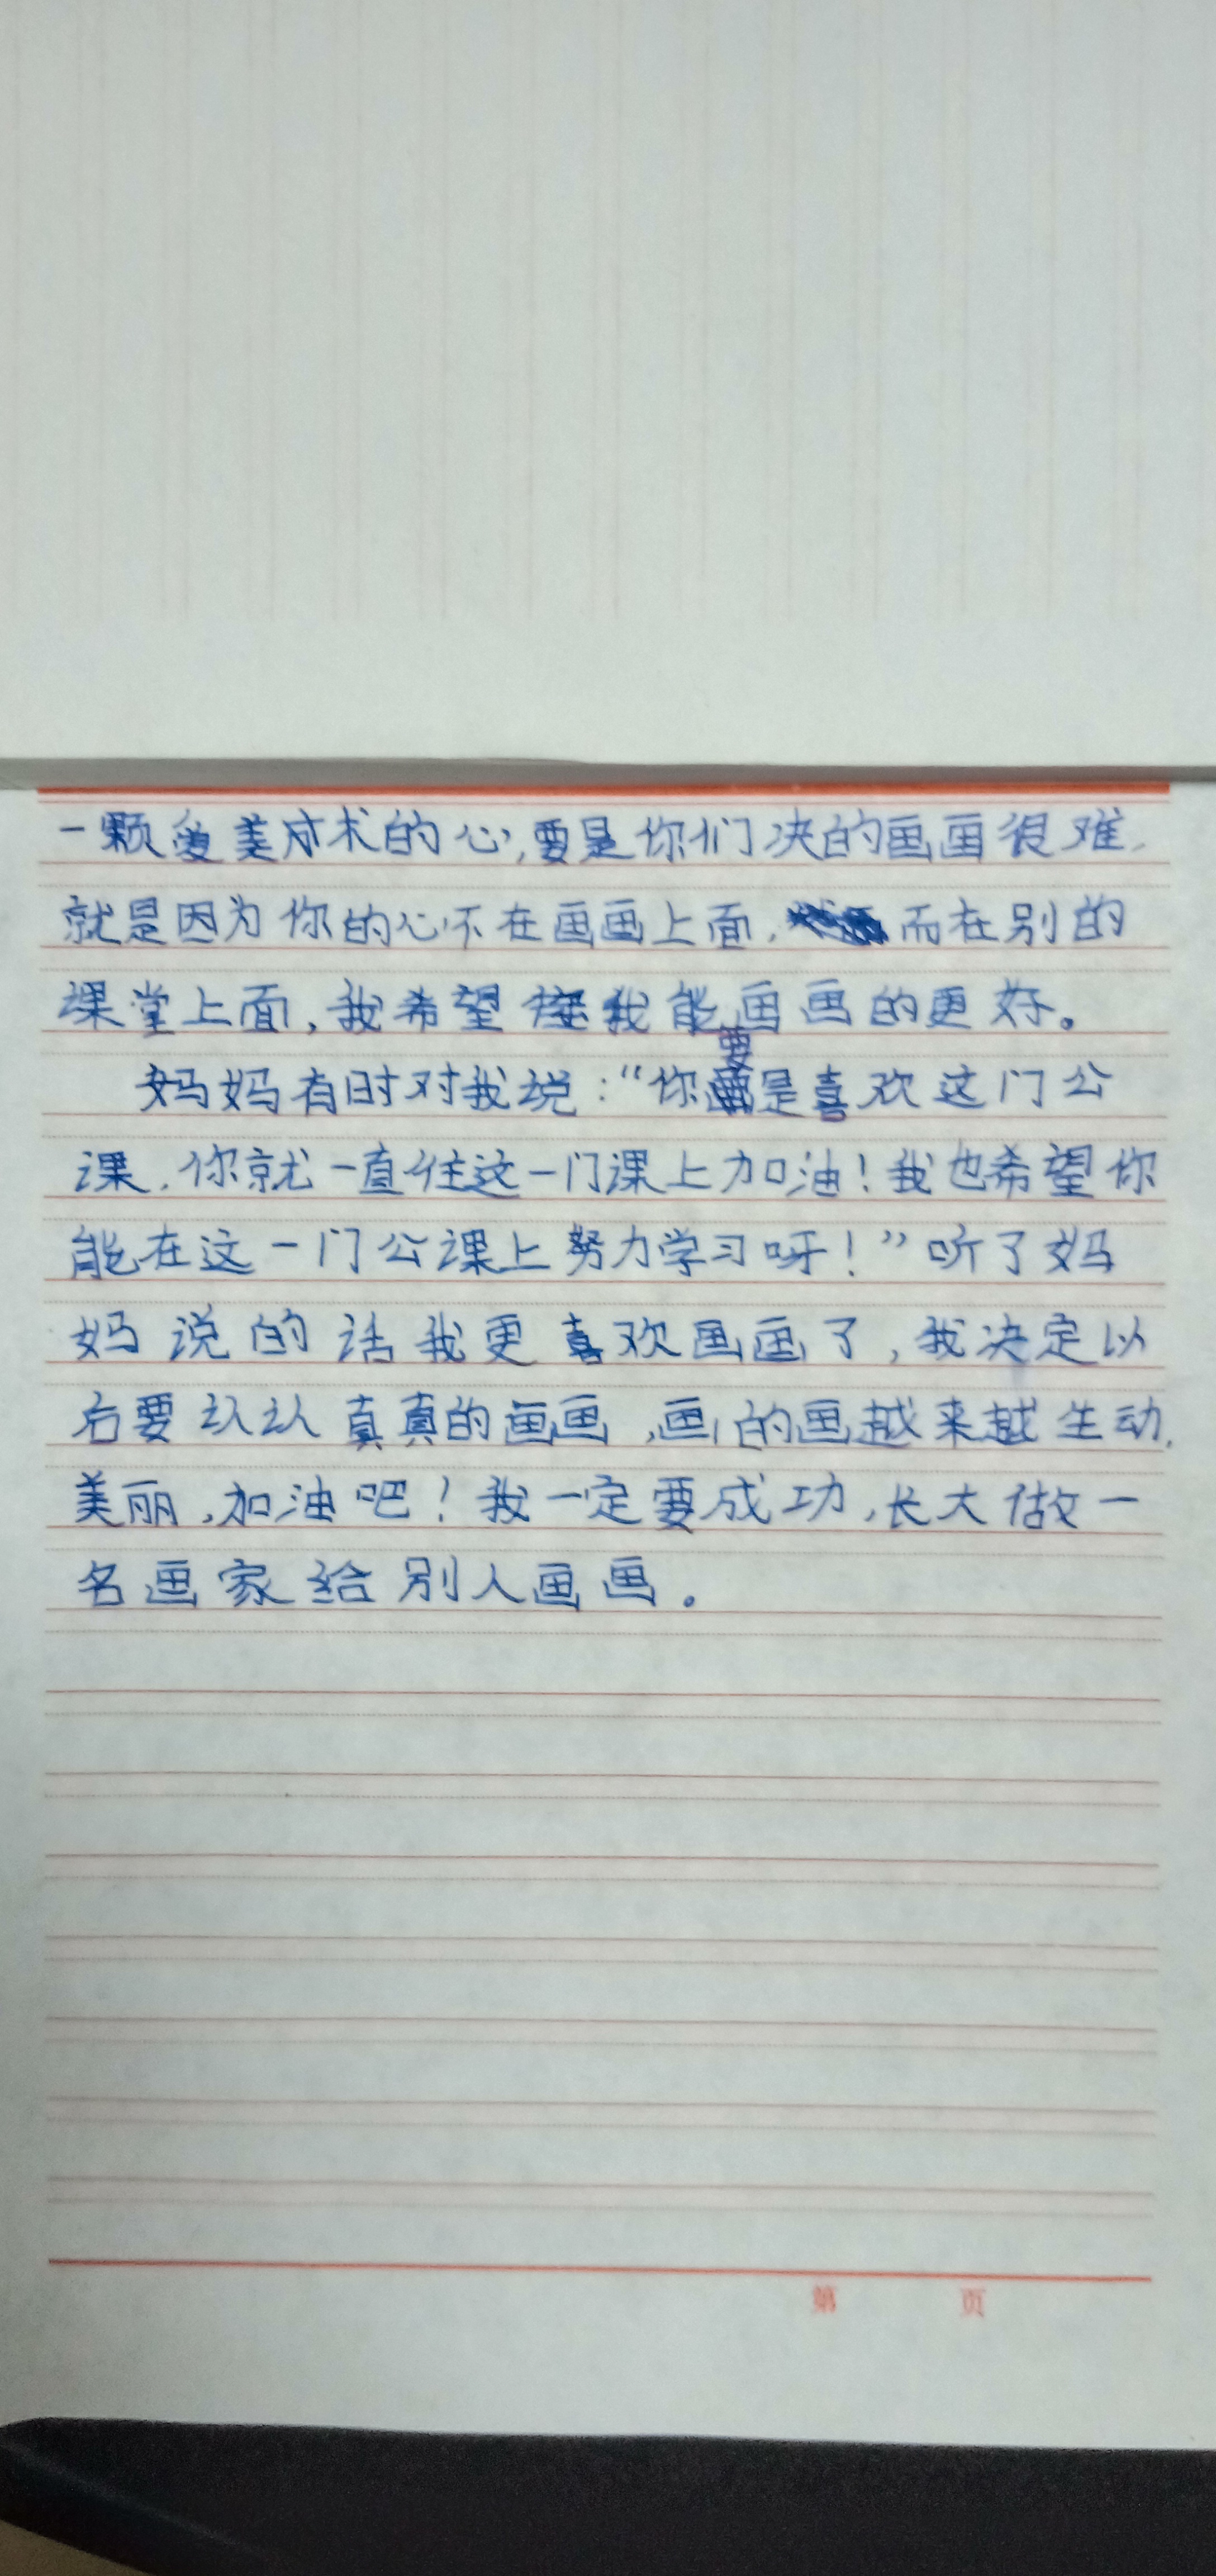 一颗爱美术的心,要是你们决的画画很难,
就是因为你的心不在画画上面,而在别的
课堂上面,我希望我能画画的更好。
妈妈有时对我说:“你要是喜欢这门公
课,你就一直往这一门课上加油!我也希望你
能在这一门公课上努力学习呀!”听了妈
妈说的话我更喜欢画画了,我决定以
后要认认真真的画画,画的画越来越生动,
美丽,加油吧!我一定要成功,长大做一
名画家给别人画画。
第 页